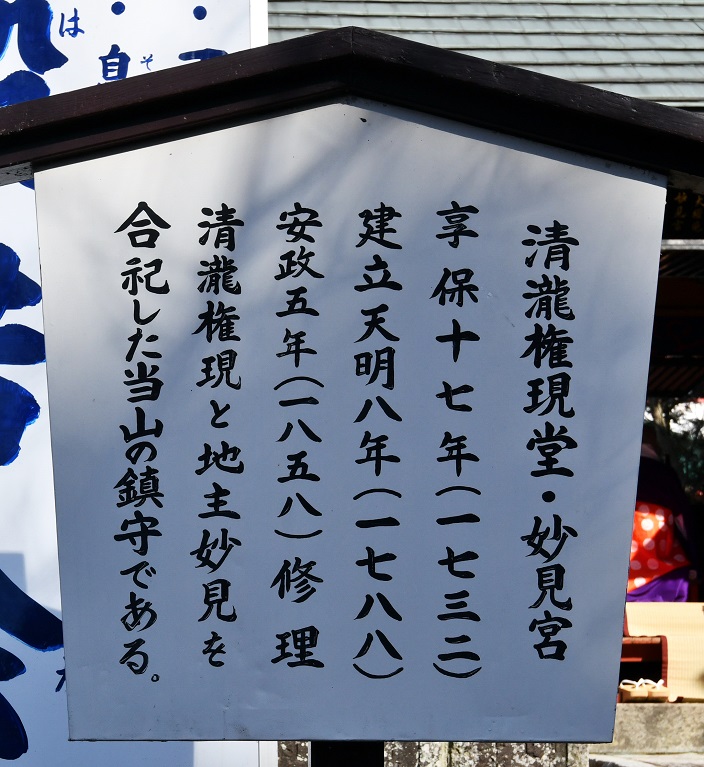 清瀧権現堂・妙見宮
享保十七年(一七三二)
建立天明八年(一七八八)
安政五年(一八五八)修理
清瀧権現と地主妙見を
合祀した当山の鎮守である。